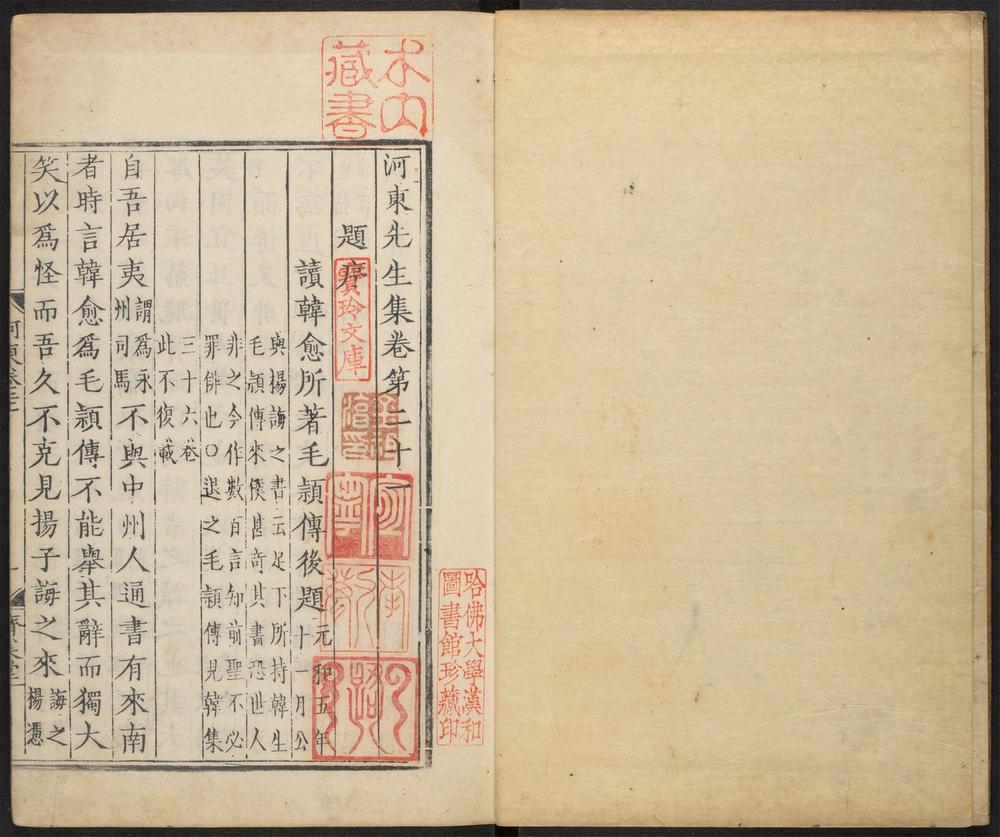 河東先生集卷第二十一
題序
讀韓愈所著毛頴傳後題
元和五年
十一月公
與楊誨之書云足下所持韓生
毛頴傳來僕甚奇其書恐世人
非之今作數百言知前聖不必
罪俳也○退之毛頴傳見韓集
三十六卷
此不復載
自吾居夷
謂為永
州司馬
不與中州人通書有來南
者時言韓愈爲毛頴傳不能舉其辭而獨大
笑以爲怪而吾久不克見楊子誨之來
誨之
楊憑
藏書
寶玲文庫
哈佛大學漢和
圖書館珍藏印